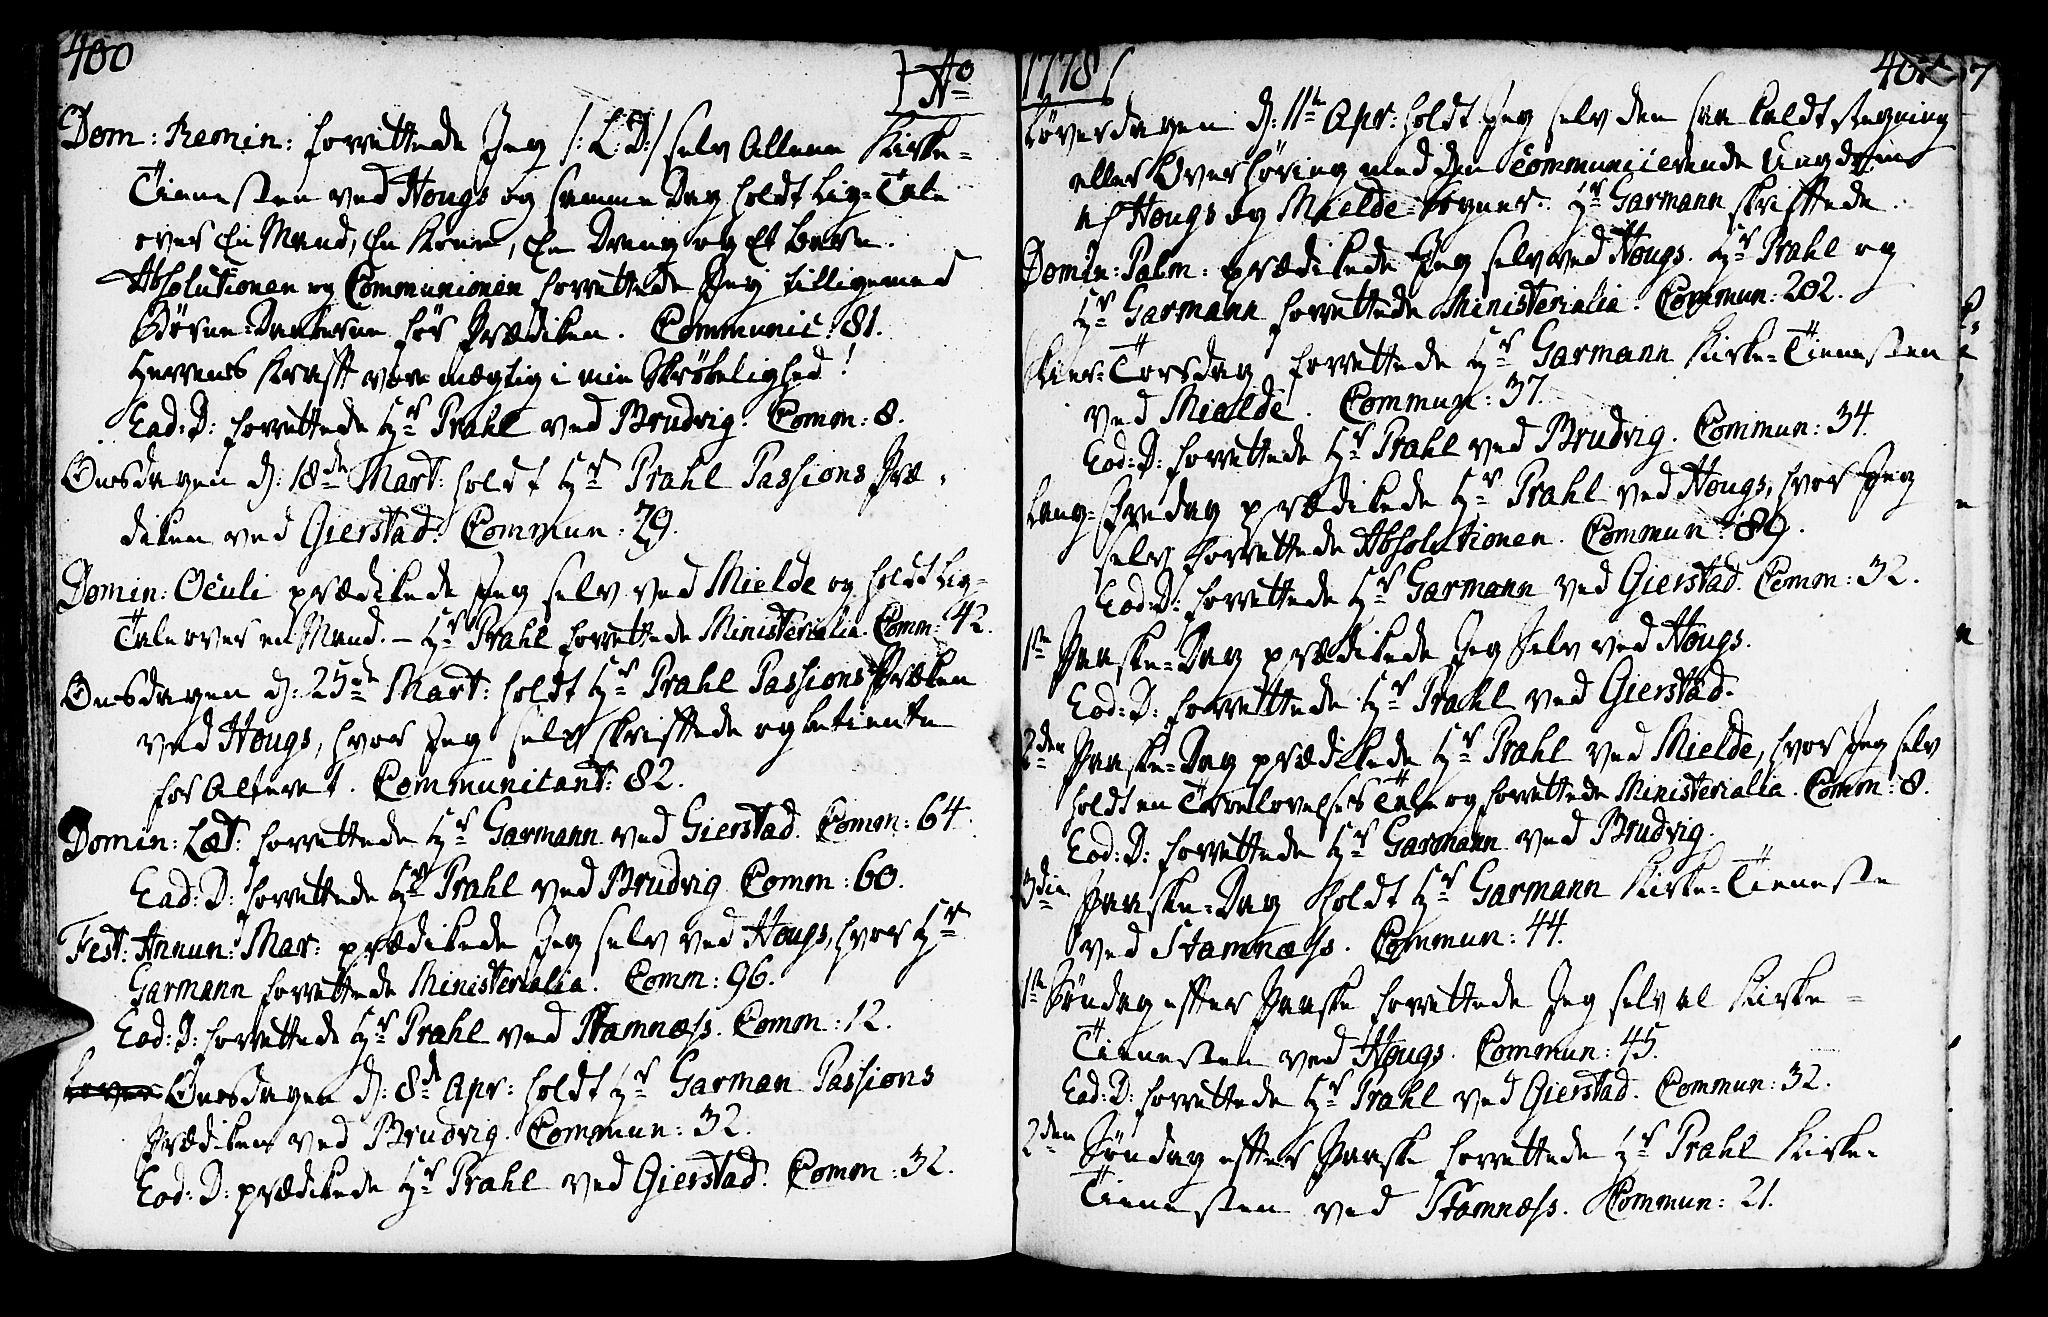 400
Ao
Dom: Remin: forrettede Jeg /: L: D:/ selv Allene Kirke-
Tienesten ved Hougs og samme Dag holdt Lig-Tale
over En Mand, En Kone, En Dreng og Et Barn.
Absolutionen og Communionen forrettede Jeg tilligemed
Børne-Daaberne før Prædiken. Communic: 81.
Herrens Krafft vær mægtig i min Skrøbelighed!
Ead: D: forrettede Hr Prahl ved Brudvig. Comm: 8.
Onsdagen d: 18de Mart: holdt Hr Prahl Passions Præ-
diken ved Gierstad. Commun: 29.
Domin: Oculi prædikede Jeg selv ved Mielde og holdt Lig-
Tale over en Mand. – Hr Prahl forrettede Ministerialia. Comm: 42.
Onsdagen d: 25de Mart: holdt Hr Prahl Passions Præken
ved Hougs, hvor Jeg selv skriftede og betiente
for Alteret. Communicant: 82.
Domin: Læt: forrettede Hr Garmann ved Gierstad. Comm: 64.
Ead: D: forrettede Hr Prahl ved Brudvig. Comm: 60.
Fest: Annun: Mar: prædikede Jeg selv ved Hougs, hvor Hr
Garmann forrettede Ministerialia. Comm: 96.
Eod: D: forrettede Hr Prahl ved Stamnæss. Comm: 12.
Onsdagen d: 8de Apr: holdt Hr Garman Passions
Prædiken ved Brudvig. Commun: 32.
Eod: D: prædikede Hr Prahl ved Gierstad. Comm: 32.
1778
401
Løverdagen d: 11te Apr: holdt Jeg selv den saa kaldt Stegning
eller Overhøring med den Communicerende Ungdom
af Hougs og Mielde-Sogner. Hr Garmann skriftede.
Domin: Palm: prædikede Jeg selv ved Hougs. Hr Prahl og
Hr Garmann forrettede Ministerialia. Commun: 202.
Skier-Torsdag forrettede Hr Garmann Kirke-Tienesten
ved Mielde. Commun: 37.
Eod: D: forrettede Hr Prahl ved Brudvig. Commun: 34.
Lang-Fredag prædikede Hr Prahl ved Hougs, hvor Jeg
selv forrettede Absolutionen. Commun: 89.
Eod: D: forrettede Hr Garmann ved Gierstad. Comm: 32.
1te Paaske-Dag prædikede Jeg Selv ved Hougs.
Eod: D: forrettede Hr Prahl ved Gierstad.
2den Paaske-Dag prædikede Hr Prahl ved Mielde, hvor Jeg selv
holdt en Troelovelses Tale og forrettede Ministerialia. Comm: 8.
Eod: D: forrettede Hr Garmann ved Brudvig.
3die Paaske-Dag holdt Hr Garmann Kirke-Tieneste
ved Stamnæss. Commun: 44.
1te Søndag efter Paaske forrettede Jeg selv al Kirke-
Tienesten ved Hougs. Commun: 45.
Eod: D: forrettede Hr Prahl ved Gierstad. Commun: 32.
2den Søndag efter Paaske forrettede Hr Prahl Kirke-
Tienesten ved Stamnæss. Commun: 21.